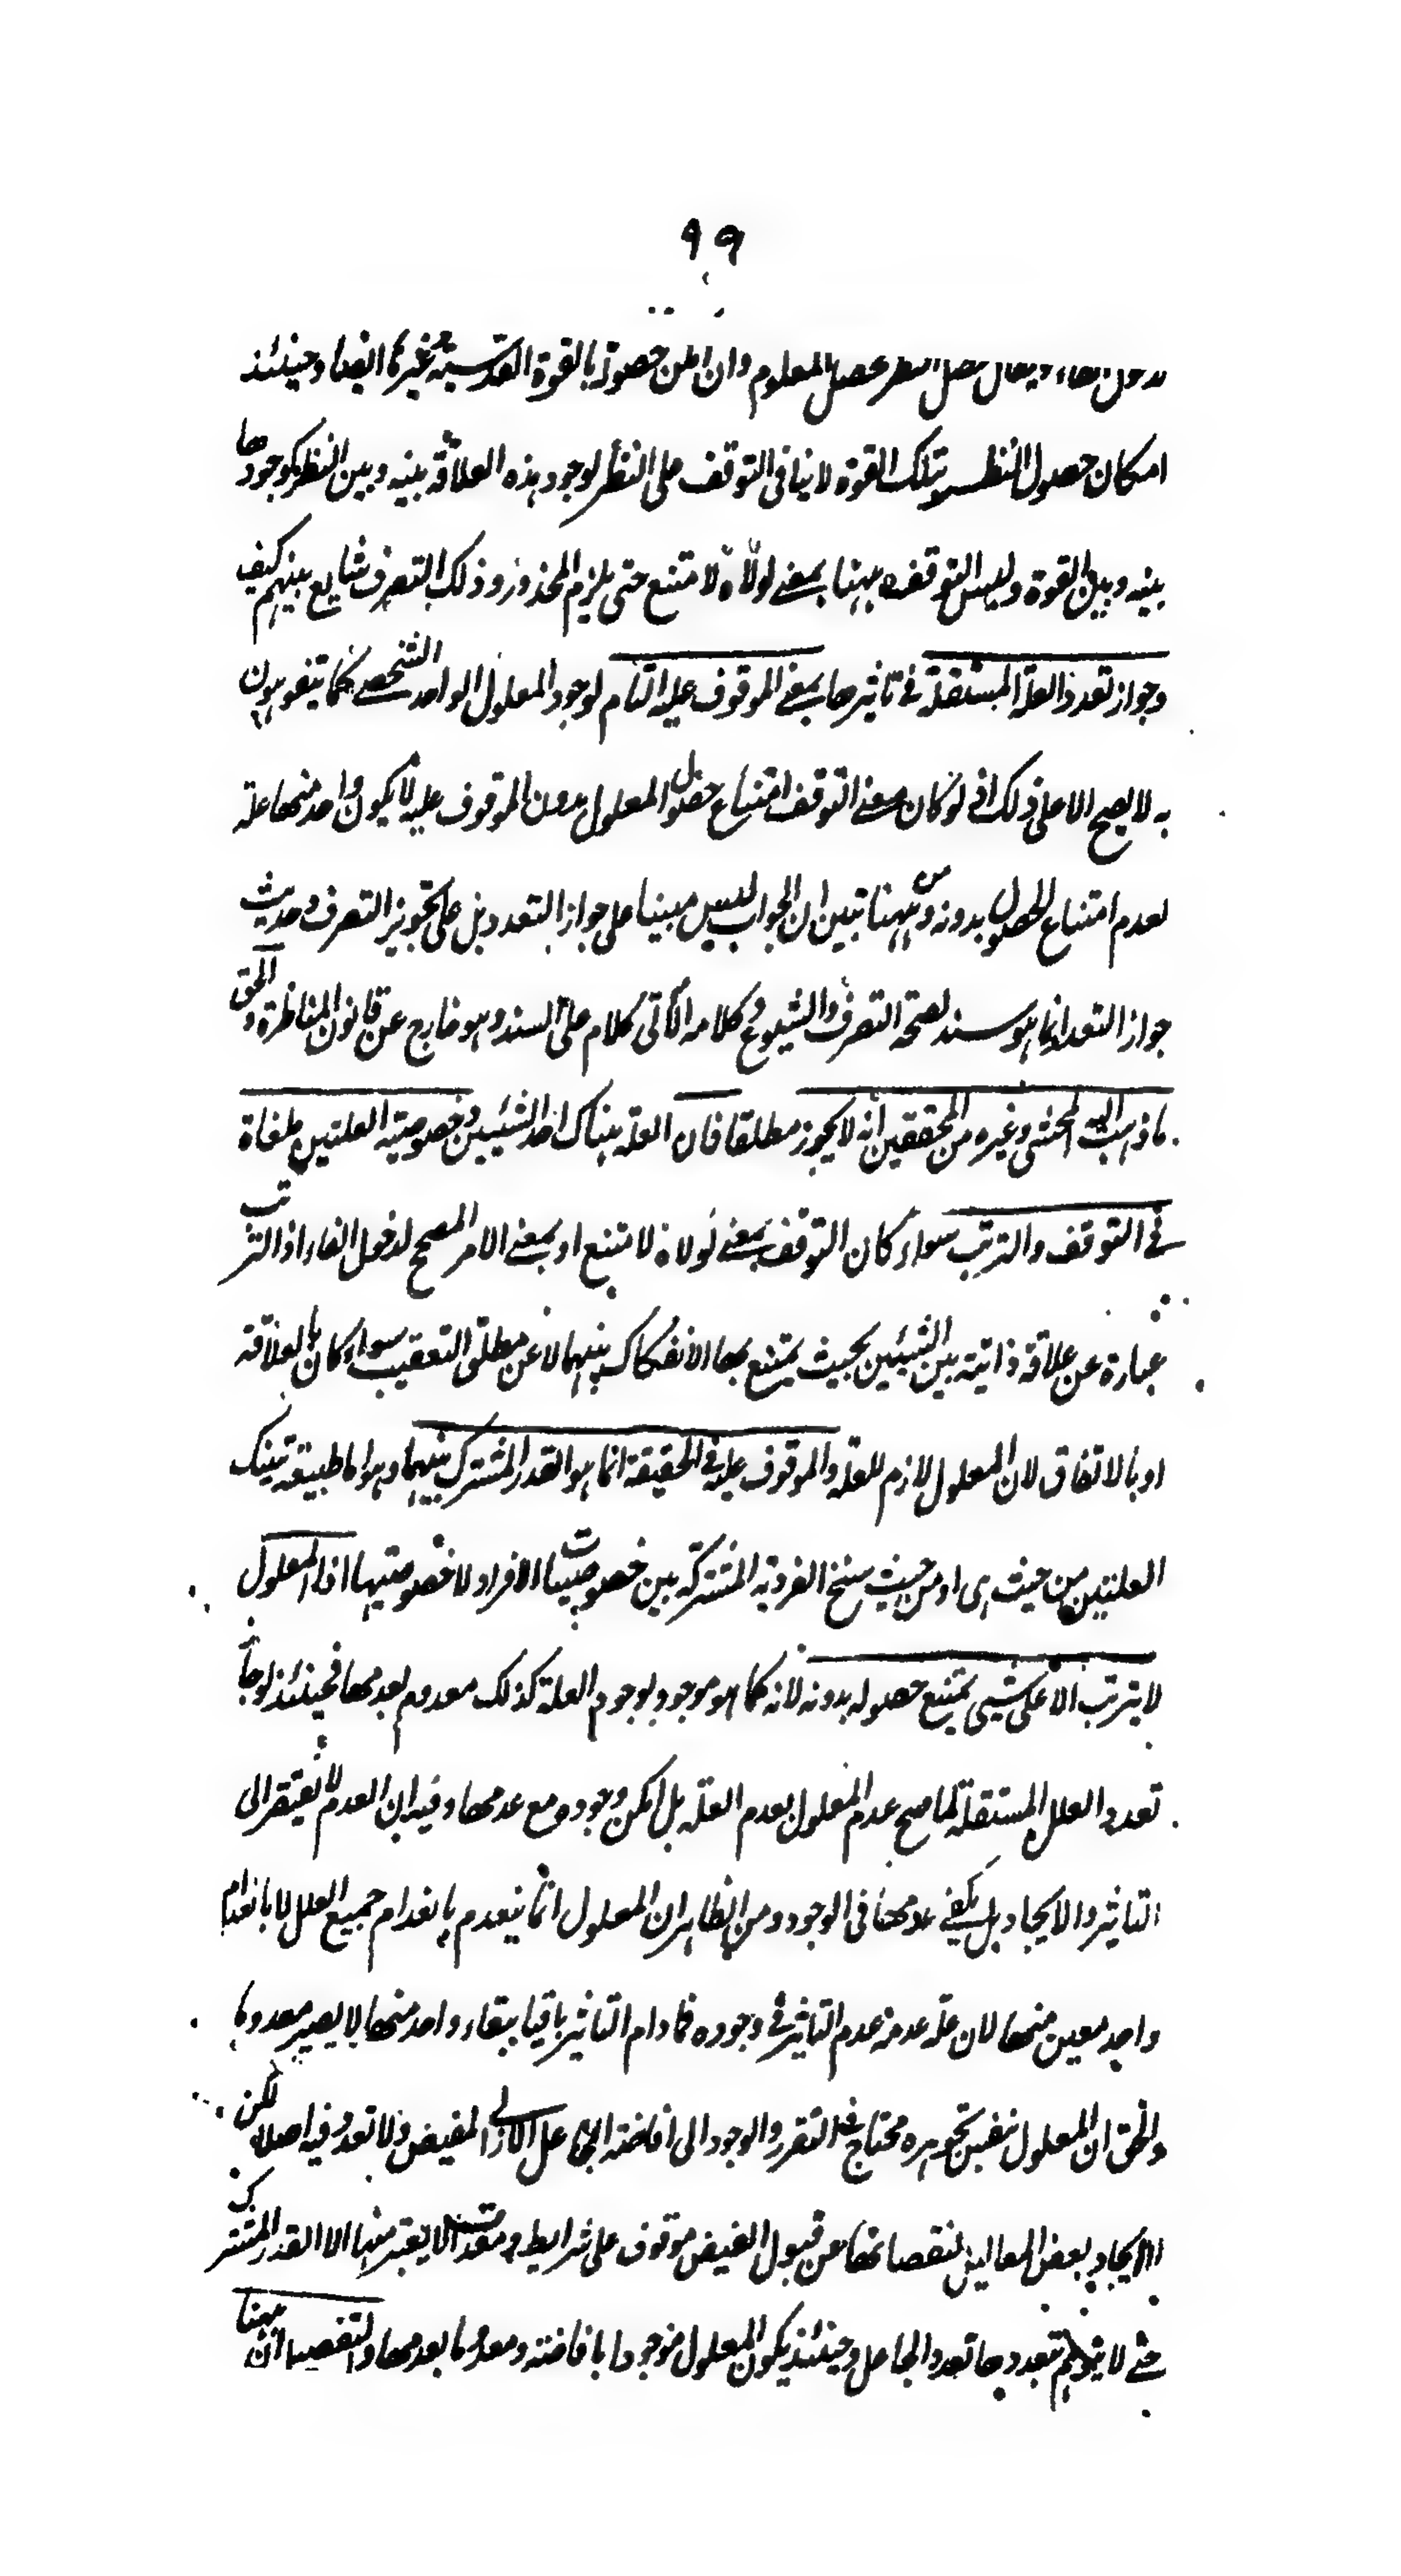 ٩٩
بدون هذا، ويقال حصل النظر فحصل المعلوم وان امكن حصوله بالقوة القدسية وغيرها ايضا وحينئذ
امكان حصول النظر بتلك القوة لا ينافى التوقف على النظر لوجود هذه العلاقة بينه وبين النظر كوجودها
بينه وبين القوة وليس التوقف ههنا بمعنى لولاه لامتنع حتى يلزم المحذور وذلك التعرف شايع بينهم كيف
وجواز تعدد العلة المستقلة فى تاثيرها بمعنى الموقوف عليه التام لوجود المعلول الواحد الشخصى كما يتفوهون
به لا يصح الا على ذلك اذ لو كان معنى التوقف امتناع حصول المعلول بدون الموقوف عليه لا يكون واحد منها علة
لعدم امتناع الحصول بدونه ومن ههنا تبين ان الجواب ليس مبنيا على جواز التعدد بل على تجويز التعرف وحديث
جواز التعدد انما هو سند لصحة التعرف والشيوع وكلامه الآتى كلام على السند وهو خارج عن قانون المناظرة والحق
ما ذهب اليه المحشى وغيره من المحققين انه لا يجوز مطلقا فان العلة هناك احد الشيئين وخصوصية العلتين ملغاة
فى التوقف والترتب سواء كان التوقف بمعنى لولاه لامتنع او بمعنى الامر المصحح لدخول الفاء اذ الترتب
عبارة عن علاقة ذاتية بين الشيئين بحيث يمتنع بها الانفكاك بينهما لا عن مطلق التعقيب سواء كان بالعلاقة
او بالاتفاق لان المعلول لازم للعلة والموقوف عليه فى الحقيقة انما هو القدر المشترك بينهما وهو اما طبيعة تينك
العلتين من حيث هى او من حيث سنخ الفردية المشتركة بين خصوصيات الافراد لا خصوصيتها اذ المعلول
لا يترتب الا على شيى يمتنع حصوله بدونه لانه كما هو موجود بوجود العلة كذلك معدوم بعدمها فحينئذ لو جاز
تعدد العلل المستقلة لما صح عدم المعلول بعدم العلة بل امكن وجوده مع عدمها وفيه ان العدم لا يفتقر الى
التاثير والايجاد بل يكفى عدمها فى الوجود ومن الظاهر ان المعلول انما ينعدم بانعدام جميع العلل لا بانعدام
واحد معين منها لان علة عدمه عدم التاثير فى وجوده فما دام التاثير باقيا ببقاء واحد منها لا يصير معدوما
والحق ان المعلول بنفس تجوهره محتاج فى التقرر والوجود الى افاضة الجاعل الازلى المفيض ولا تعدد فيه اصلا لكن
الايجاد بعض المعاليل لنقصانها عن قبول الفيض موقوف على شرايط ومعدات لا يعتبر منها الا القدر المشترك
حتى لا يتوهم تعددها تعدد الجاعل وحينئذ يكون المعلول موجودا بافاضته ومعدوما بعدمها والتفصيل ان ههنا